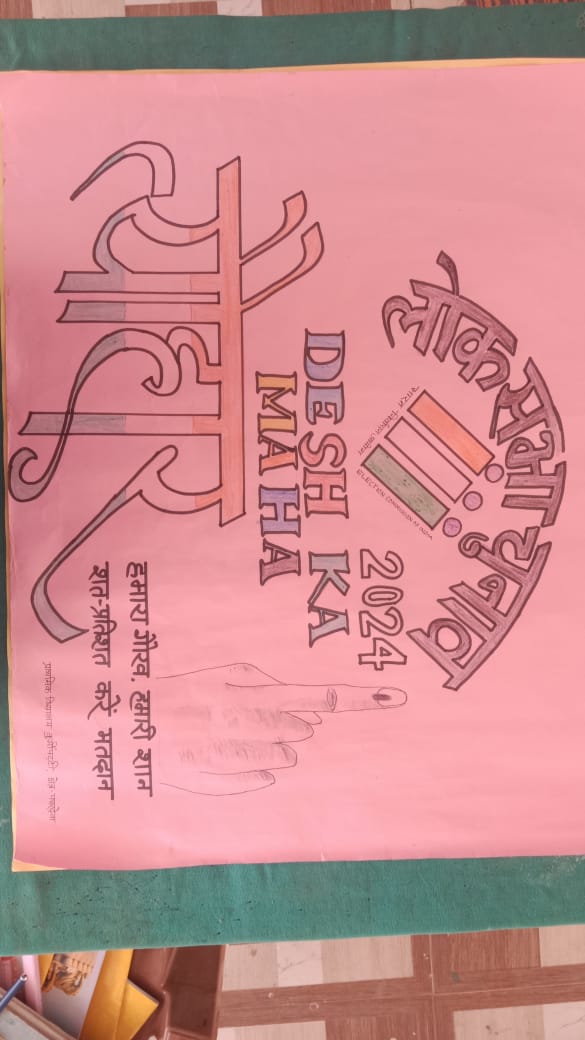 लोक सभा चुनाव
भारत निर्वाचन आयोग
ELECTION COMMISSION OF INDIA
2024
DESH KA
MAHA
त्यौहार
हमारा गौरव, हमारी शान
शत-प्रतिशत करें मतदान
प्राथमिक विद्यालय